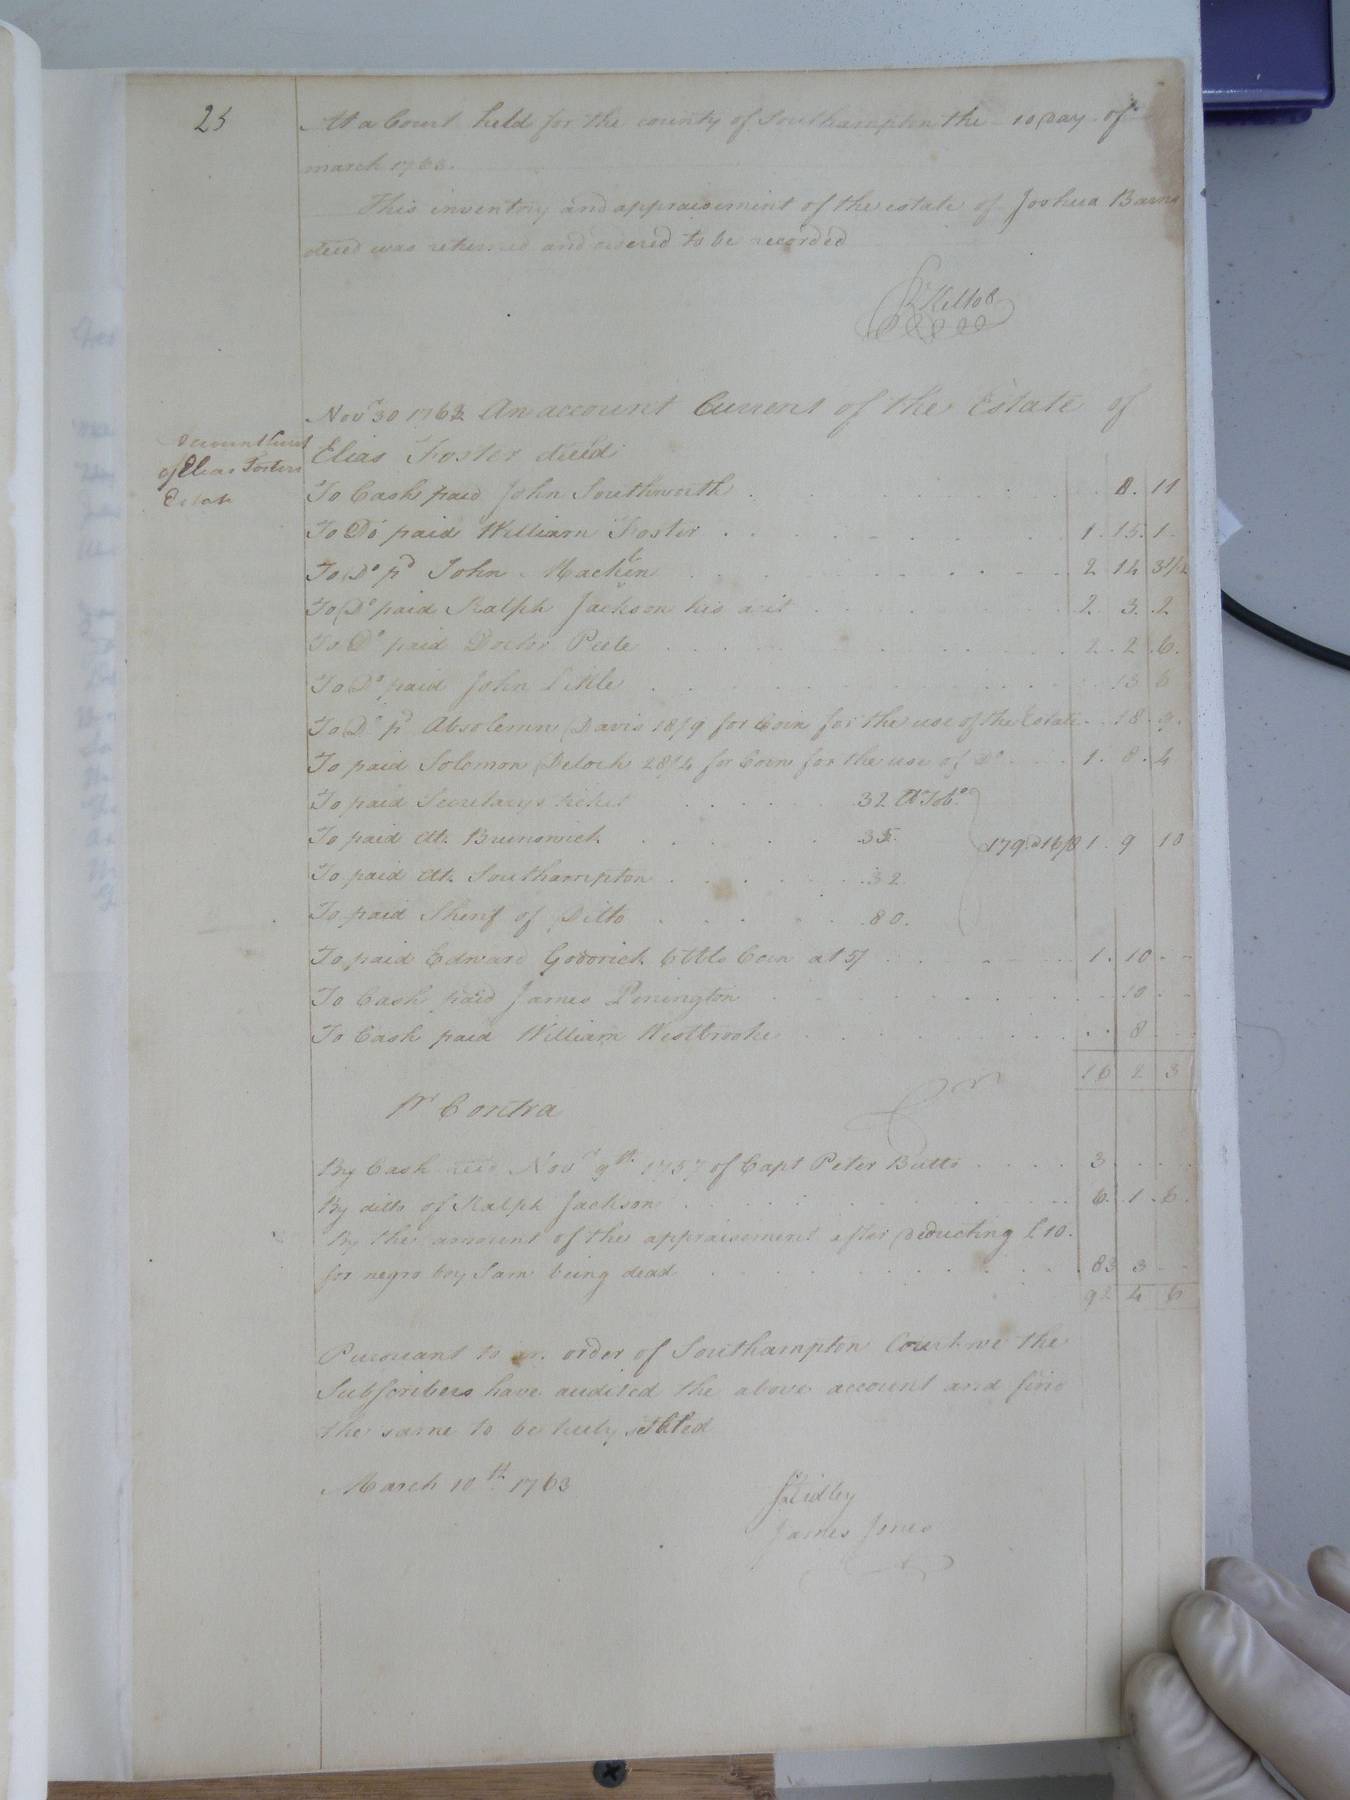 25
At a Court held for the county of Southampton the 10 Day of
march 1763.
This inventory and appraisement of the estate of Joshua Barns
deced was returned and ordered to be recorded
Novr 30 1762 An account Current of the Estate of
Account Curent
of Elias Fosters
Estate
Elias Foster deced
To Cash paid John Southworth . . . 8. 11
To Do paid William Foster . . . 1. 15. 1
To Do pd John Mackin . . . 2 14 3 1/2
To Do paid Ralph Jackson his acct . . . 2. 3. 2
To Do paid Doctor Peete . . . 2. 2 6.
To Do paid John Little . . . 13 6
To Do pd Absolemn Davis 18/9 for Corn for the use of the Estate . . 18. 9.
To paid Solomon Deloch 28/4 for Corn for the use of Do . . . 1. 8. 4
To paid Secretarys ticket . . . 32 Wt Tobo.
To paid at. Brunswick . . . 35. 179 @ 16/8 1. 9 10
To paid at. Southampton . . . 32.
To paid Sherif of Ditto . . . 80.
To paid Edward Goodrich 6 bbls Corn at 5/ . . . 1. 10 - -
To Cash paid James Penington . . . 10 . -
To Cash paid William Westbrooke . . . 8
16 2 3
pr Contra Cr
By Cash recd Novr 9th 1757 of Capt Peter Butts . . . 3
By ditto of Ralph Jackson . . . 6. 1. 6.
By the amount of the appraisement after deducting £10.
for negro boy Sam being dead . . . 83 3 - -
92 4 6
Pursuant to an order of Southampton Court we the
Subscribers have audited the above account and find
the same to be truly settled
March 10th 1763
Ridley
James Jones